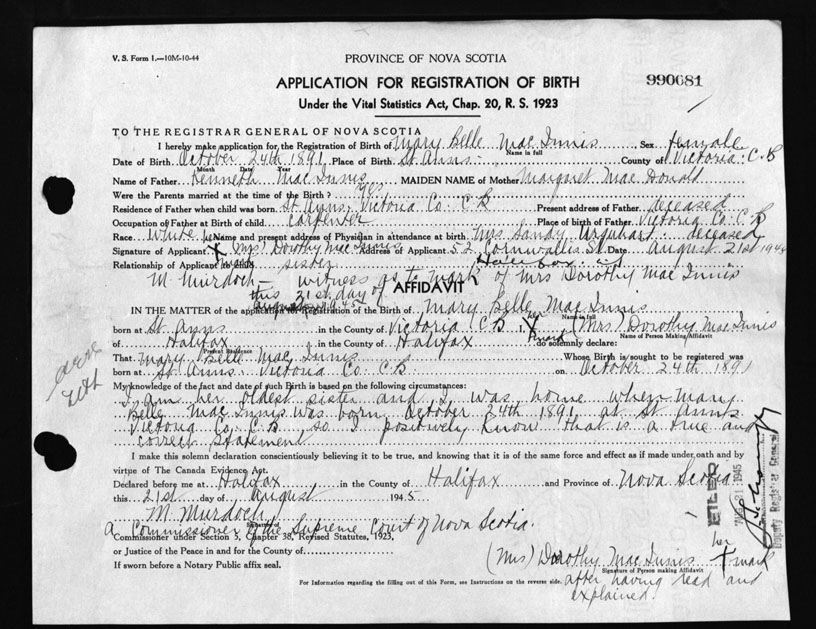 V. S. Form 1.—10M-10-44
PROVINCE OF NOVA SCOTIA
APPLICATION FOR REGISTRATION OF BIRTH
990681
Under the Vital Statistics Act, Chap. 20, R. S. 1923
TO THE REGISTRAR GENERAL OF NOVA SCOTIA
I hereby make application for the Registration of Birth of Mary Belle Mac Innis Sex female
Name in full
Date of Birth October 24th 1891 Place of Birth St. Anns County of Victoria C.B
Month Date Year
Name of Father Kenneth Mac Innis MAIDEN NAME of Mother Margaret Mac Donald
Were the Parents married at the time of the Birth? yes
Residence of Father when child was born St Anns Victoria Co. C.B Present address of Father deceased
Occupation of Father at Birth of child Carpenter Place of birth of Father Victoria Co. C.B
Race White Name and present address of Physician in attendance at birth Mrs Sandy Urquhart deceased
Signature of Applicant her X mark (Mrs) Dorothy Mac Innis Address of Applicant 52 Cornwallis St Date August 21st 1945
Relationship of Applicant to child sister
M. Murdoch - witness as to mark of Mrs Dorothy Mac Innis
this 21st day of August 1945
AFFIDAVIT
IN THE MATTER of the application for Registration of the Birth of Mary Belle Mac Innis
Name in full
born at St Anns in the County of Victoria C.B I, her X mark (Mrs) Dorothy Mac Innis
Name of Person Making Affidavit
of Halifax in the County of Halifax do solemnly declare:
Present Residence
That Mary Belle Mac Innis Whose Birth is sought to be registered was
born at St Anns Victoria Co. C.B on October 24th 1891
My knowledge of the fact and date of such Birth is based on the following circumstances:
I am her oldest sister and I was home when Mary
Belle Mac Innis was born October 24th 1891 at St Anns
Victoria Co. C.B so I positively know that is a true and
correct statement
I make this solemn declaration conscientiously believing it to be true, and knowing that it is of the same force and effect as if made under oath and by
virtue of The Canada Evidence Act.
Declared before me at Halifax in the County of Halifax and Province of Nova Scotia
this 21st day of August 1945
M. Murdoch
A Commissioner of the Supreme Court of Nova Scotia.
Commissioner under Section 5, Chapter 38, Revised Statutes, 1923,
or Justice of the Peace in and for the County of
If sworn before a Notary Public affix seal.
(Mrs) Dorothy Mac Innis her X mark
Signature of Person making Affidavit
after having read and
explained
For Information regarding the filling out of this Form, see Instructions on the reverse side.
FILED
AUG 31 1945
Deputy Registrar General